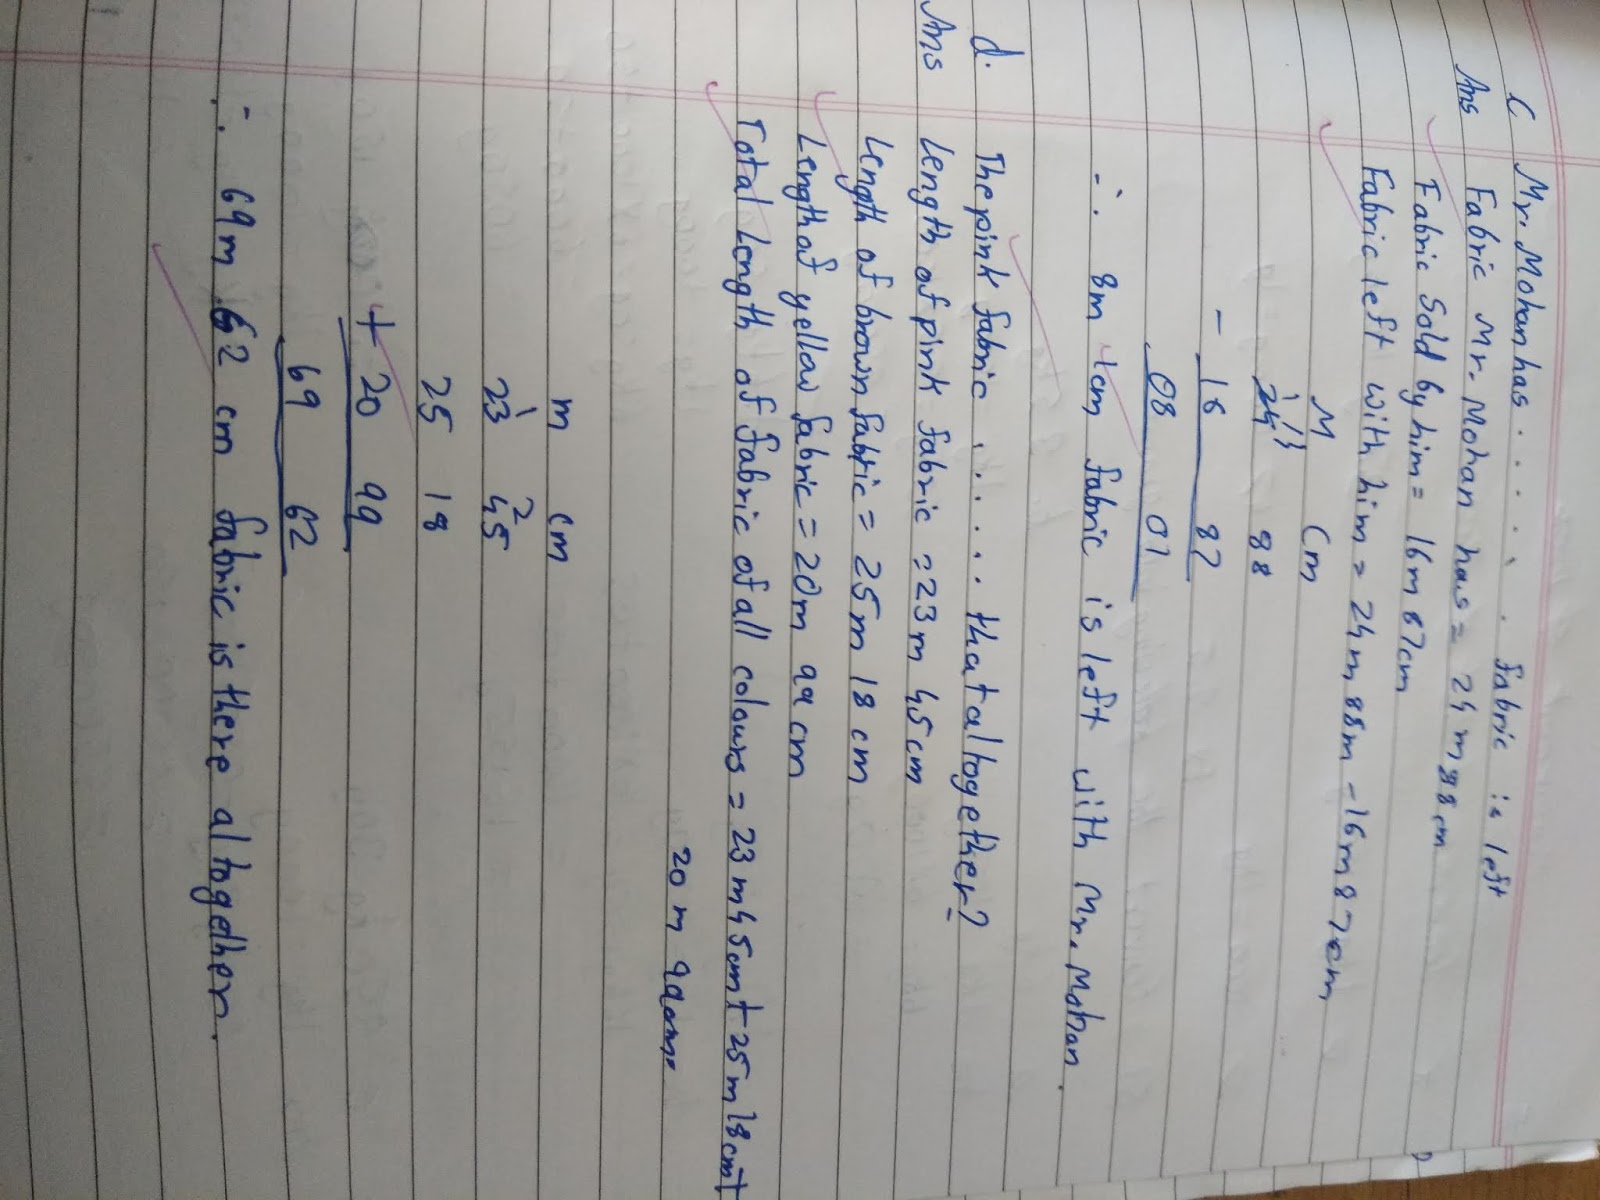 C Mr. Mohan has . . . . . . fabric is left
Ans Fabric Mr. Mohan has = 24 m 88 cm
Fabric Sold by him = 16m 87cm
Fabric left with him = 24 m 88m - 16m 87cm
M Cm
1 1
24 88
- 16 87
08 01
∴ 8m 1cm fabric is left with Mr. Mohan.
d. The pink fabric . . . . . that altogether?
Ans Length of pink fabric = 23 m 45 cm
Length of brown fabric = 25 m 18 cm
Length of yellow fabric = 20m 99 cm
Total Length of fabric of all colours = 23 m 45cm + 25 m 18cm +
20 m 99cm.
m cm
1 2
23 45
25 18
+ 20 99
69 62
∴ 69 m 62 cm fabric is there altogether.